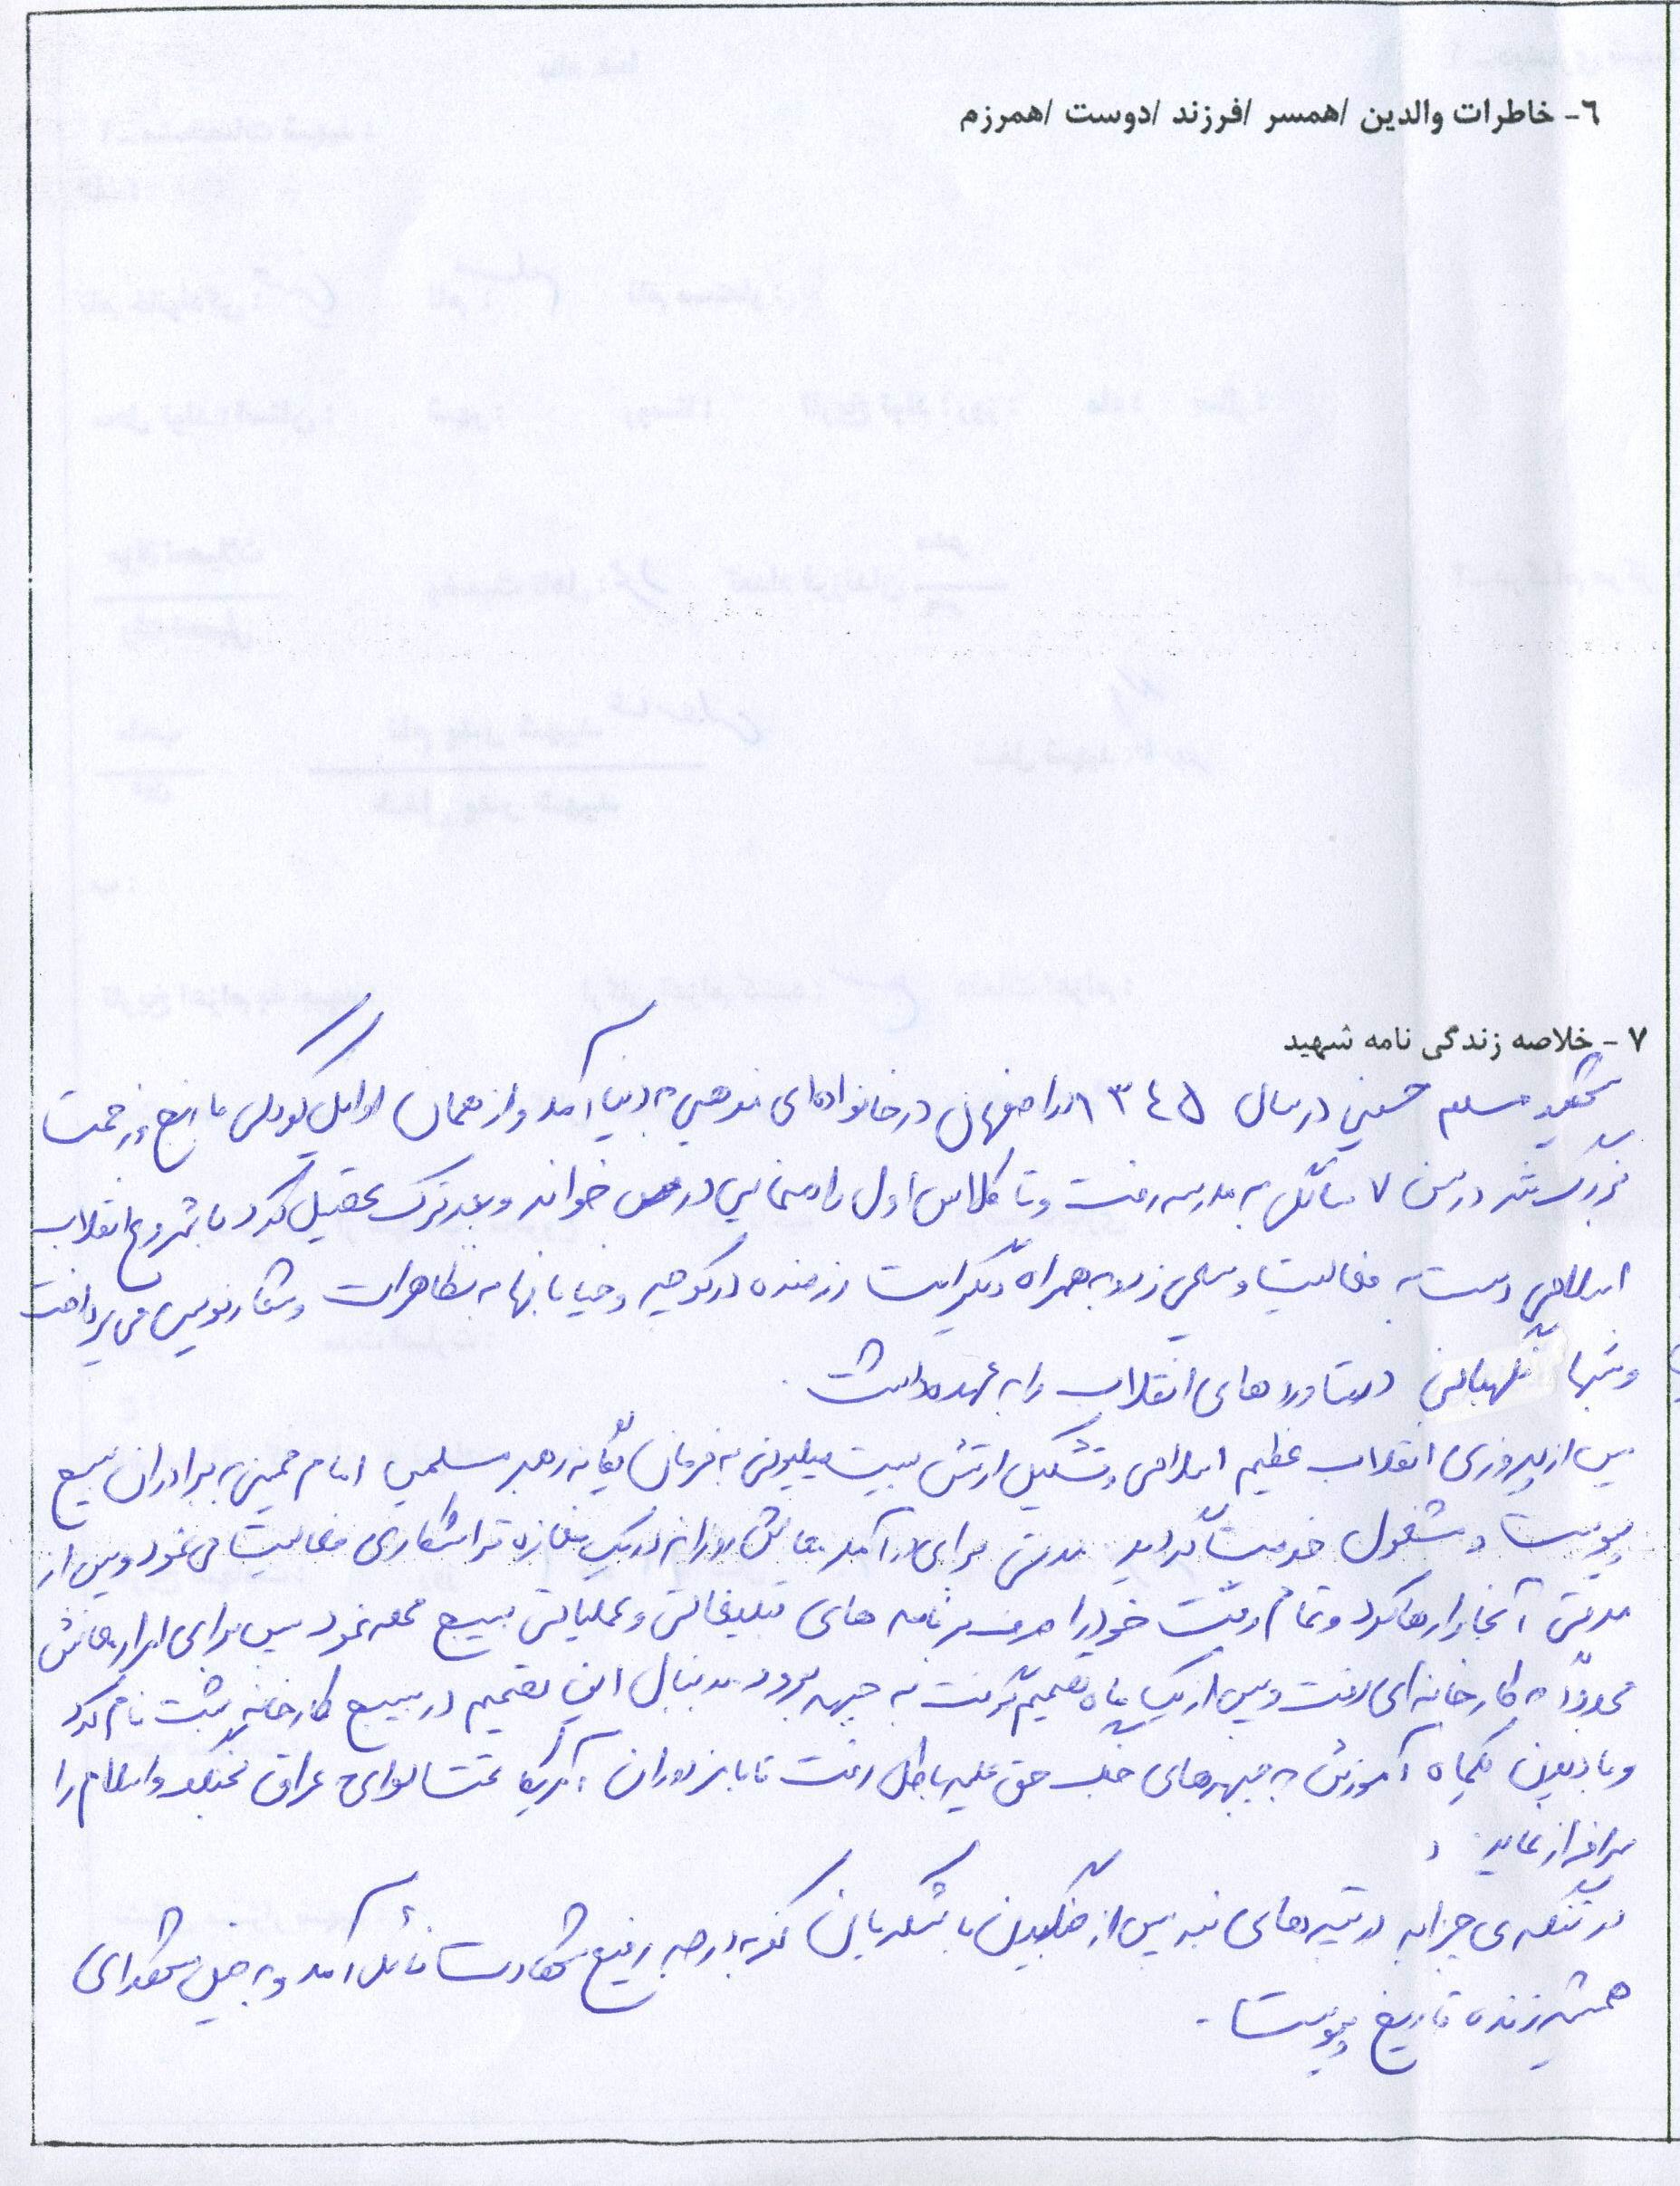 ٦- خاطرات والدین /همسر /فرزند /دوست /همرزم
٧ - خلاصه زندگی نامه شهید
شهید مسلم حسینی در سال ١٣٤٥ در اصفهان در خانواده‌ای مذهبی به دنیا آمد و از همان اوایل کودکی با رنج و زحمت
بزرگ شد در سن ٧ سالگی به مدرسه رفت و تا کلاس اول راهنمایی درس خواند و بعد ترک تحصیل کرد با شروع انقلاب
اسلامی دست به فعالیت وسیعی زد و به همراه دیگر امت رزمنده در کوچه و خیابانها به تظاهرات و شعارنویسی می پرداخت
و شبها نگهبانی دستاوردهای انقلاب را به عهده داشت.
پس از پیروزی انقلاب عظیم اسلامی و تشکیل ارتش بیست میلیونی به فرمان یگانه رهبر مسلمین امام خمینی به برادران بسیج
پیوست و مشغول خدمت گردید مدتی برای درآمد معاش روزانه در یک مغازه تراشکاری فعالیت می نمود و پس از
مدتی آنجا را رها کرد و تمام وقت خود را صرف برنامه های تبلیغاتی و عملیاتی بسیج محله نمود سپس برای امرار معاش
مجدداً به کارخانه‌ای رفت و پس از یک ماه تصمیم گرفت به جبهه برود بدنبال این تصمیم در بسیج کارخانه ثبت نام کرد
و با دیدن یکماه آموزش به جبهه‌های جنگ حق علیه باطل رفت تا با مزدوران آمریکا تحت لوای عراق بجنگد و اسلام را
سرافراز نماید.
در تنگه‌ی چزابه در تپه‌های نبعه پس از جنگیدن با لشکریان کفر به درجه رفیع شهادت نائل آمد و به خیل شهدای
همیشه زنده تاریخ پیوست.